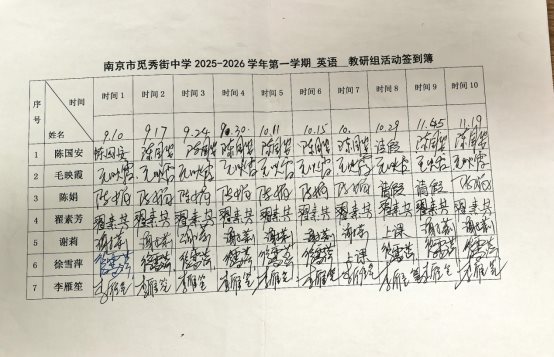 南京市觅秀街中学 2025-2026 学年第一学期 英语 教研组活动签到簿
序号 时间 姓名 时间 1 时间 2 时间 3 时间 4 时间 5 时间 6 时间 7 时间 8 时间 9 时间 10
9.10 9.17 9.24 9.30 10.11 10.15 10. 10.29 11.19
1 陈国安 陈国安 陈国安 陈国安 陈国安 陈国安 陈国安 陈国安 请假 陈国安 陈国安
2 毛映霞 毛映霞 毛映霞 毛映霞 毛映霞 毛映霞 毛映霞 毛映霞 毛映霞 毛映霞 毛映霞
3 陈娟 陈娟 陈娟 陈娟 陈娟 陈娟 陈娟 陈娟 请假 请假 陈娟
4 翟素芳 翟素芳 翟素芳 翟素芳 翟素芳 翟素芳 翟素芳 翟素芳 翟素芳 翟素芳 翟素芳
5 谢莉 谢莉 谢莉 谢莉 谢莉 谢莉 谢莉 谢莉 上课 谢莉 谢莉
6 徐雪萍 徐雪萍 徐雪萍 徐雪萍 徐雪萍 徐雪萍 徐雪萍 上课 徐雪萍 徐雪萍 徐雪萍
7 李雁笙 李雁笙 李雁笙 李雁笙 李雁笙 李雁笙 李雁笙 李雁笙 李雁笙 李雁笙 李雁笙